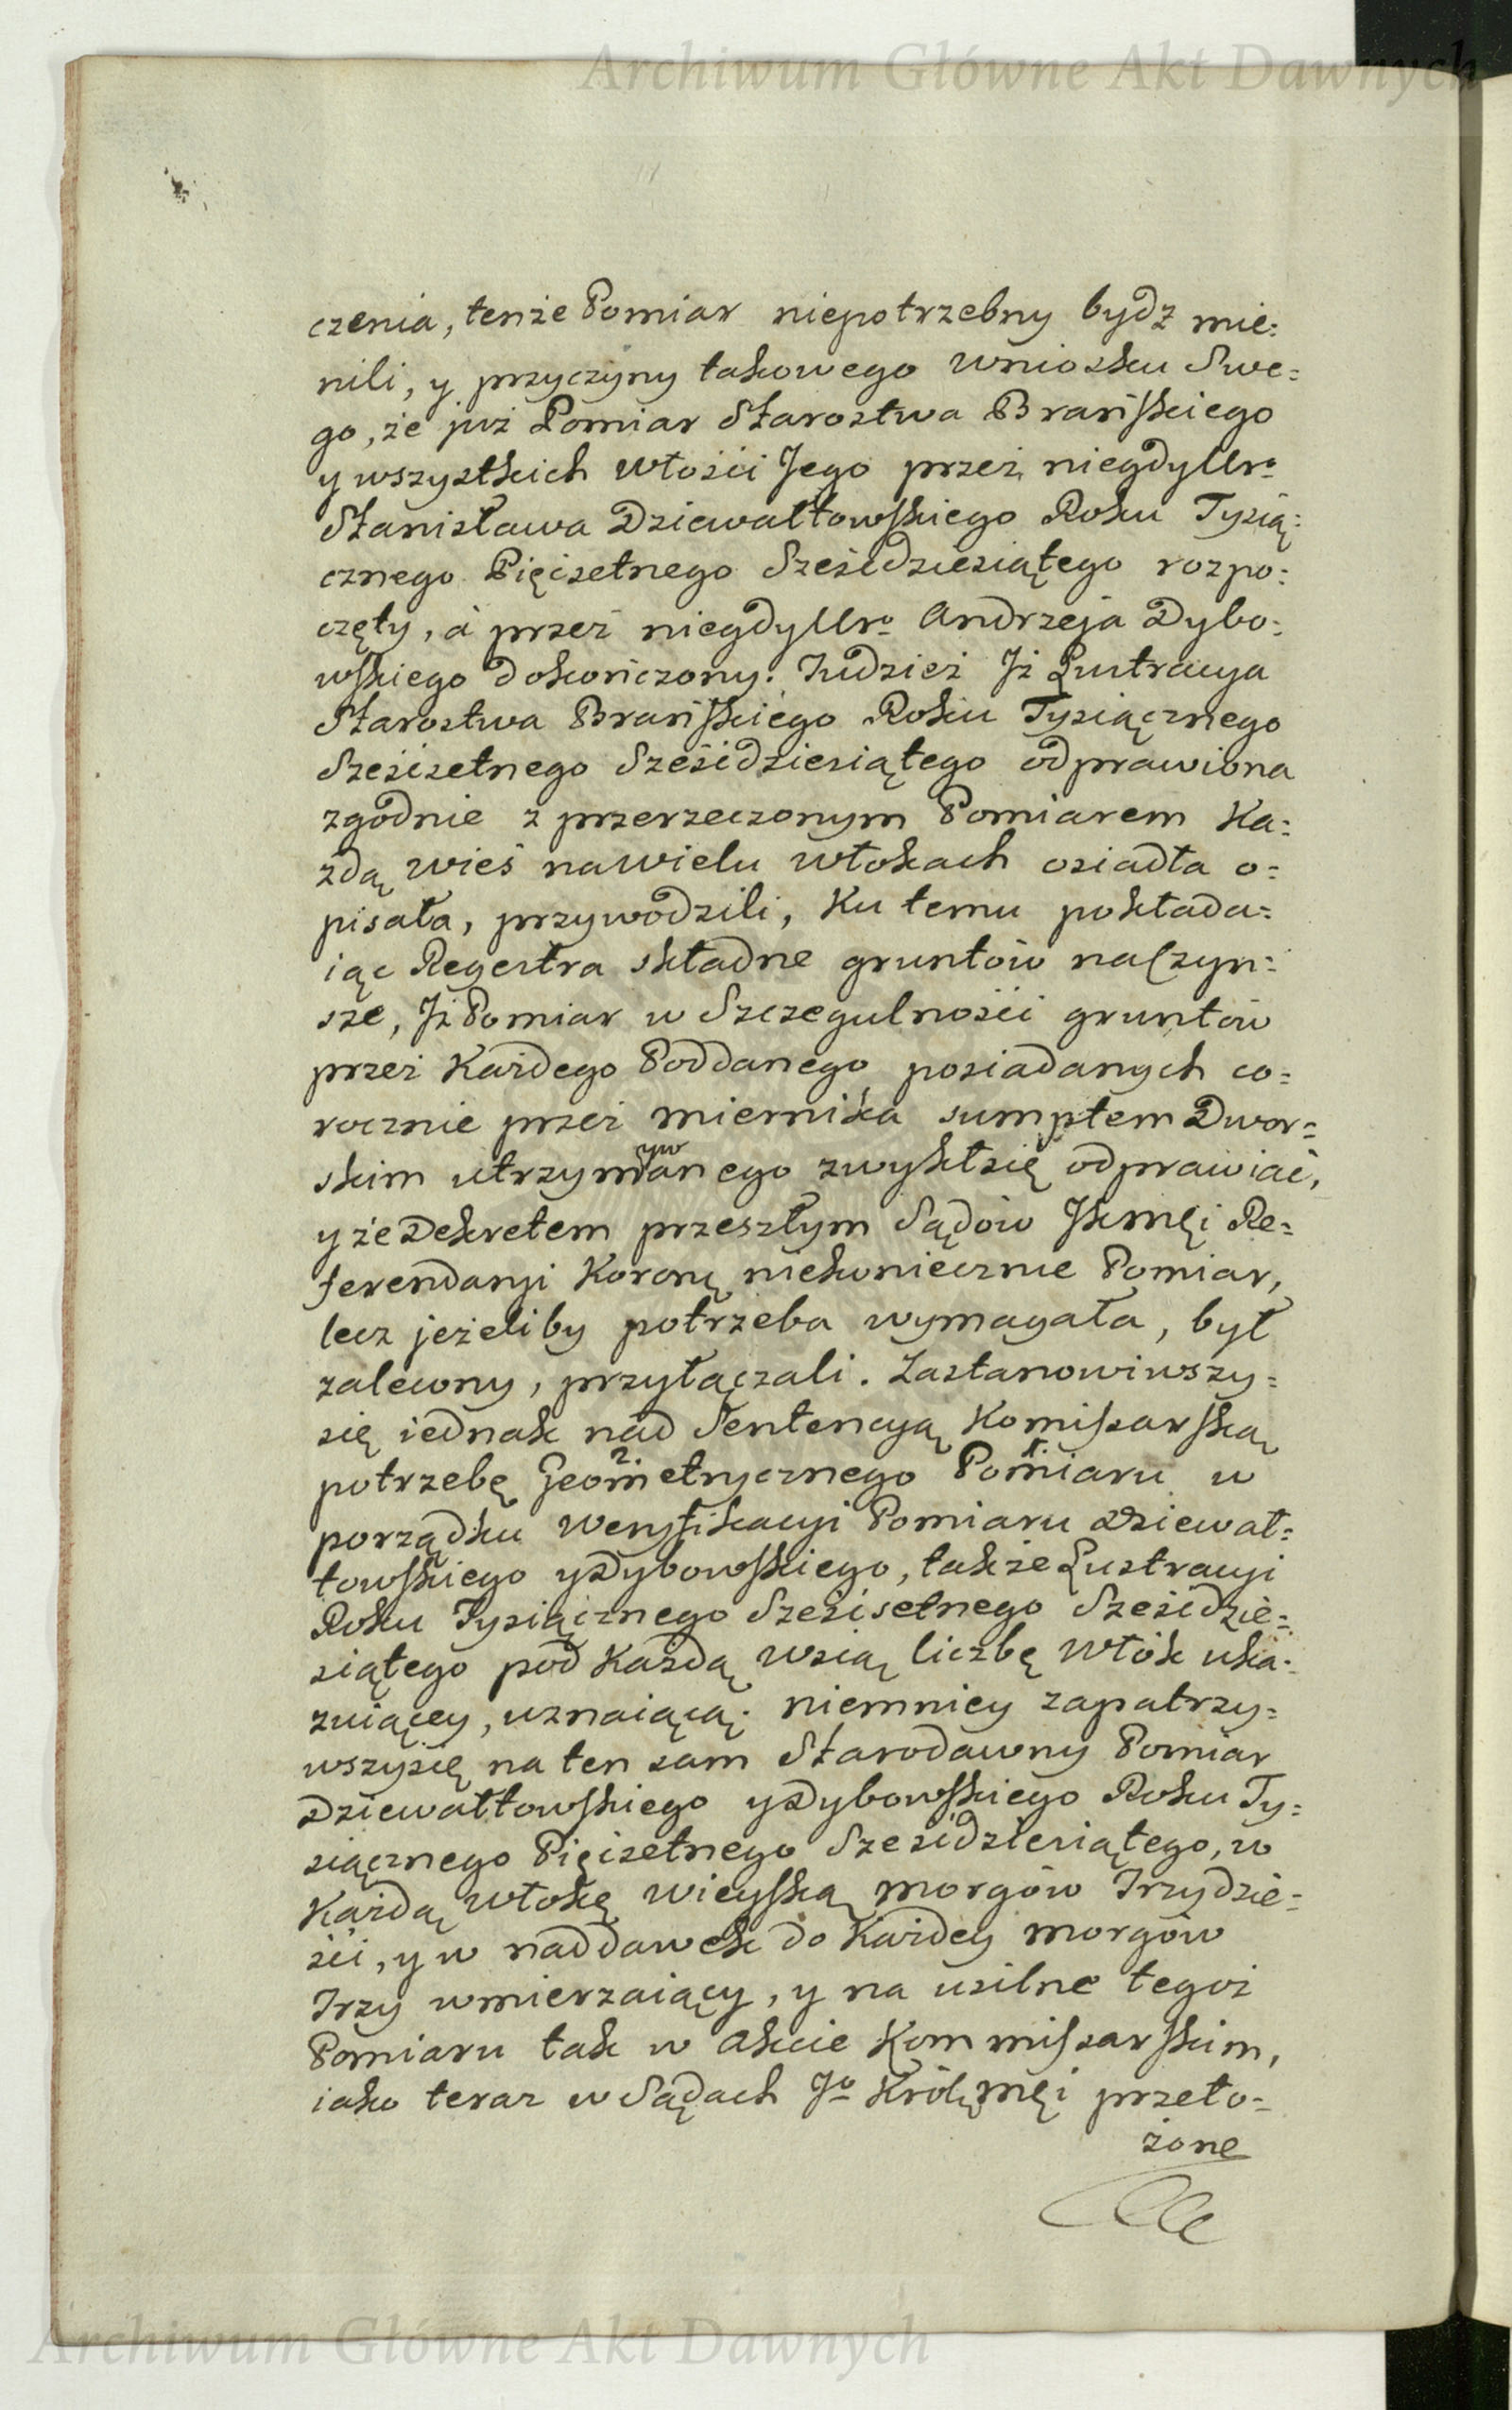 Archiwum Główne Akt Dawnych
czenia, tenże Pomiar niepotrzebny bydź mie:
nili, y przyczyny takowego wniosku Swe:
go, że już Pomiar Starostwa Brańskiego
y wszystkich włości Jego przez niegdy Uro
Stanisława Dziewałtowskiego Roku Tysią:
cznego Pięćsetnego Sześćdziesiątego rozpo:
częty, á przez niegdy Uro Andrzeja Dybo:
wskiego dokończony: Tudzież Jż Lustracya
Starostwa Brańskiego Roku Tysiącznego
Sześćsetnego Sześćdziesiątego odprawiona
zgodnie z przerzeczonym Pomiarem Ka:
żdą wieś na wielu włokach osiadła o:
pisała, przywodzili, Ku temu pokłada:
iąc Regestra składne gruntów na Czyn:
sze, Jż Pomiar w Szczegulności gruntów
przez Każdego Poddanego posiadanych co:
rocznie przez miernika sumptem Dwor:
skim utrzymanego zwykł się odprawiać,
yw
y że Dekretem przeszłym Sądów JKMci Re:
ferendaryi Koronę niekoniecznie Pomiar,
lecz jeżeliby potrzeba wymagała, był
zalecony, przyłączali. Zastanowiwszy:
się iednak nad Sentencyą Komissarską
potrzebę Geometrycznego Pomiaru w
porządku weryfikacyi Pomiaru Dziewał:
towskiego y Dybowskiego, także Lustracyi
Roku Tysiącznego Sześćsetnego Sześćdzie:
siątego pod Każdą wsią liczbę włók uka:
zuiącey, uznaiącą: niemniey zapatrzy:
wszysię na ten sam Starodawny Pomiar
Dziewałtowskiego y Dybowskiego Roku Ty:
siącznego Pięćsetnego Sześćdziesiątego, w
Każdą włokę wieyską morgów Trzydzie:
ści, y w naddawek do Każdey morgów
Trzy wmierzaiący, y na usilne tegoż
Pomiaru tak w Akcie Kommissarskim,
iako teraz w Sądach Jo Królę Mci przeło:
żone
Archiwum Główne Akt Dawnych